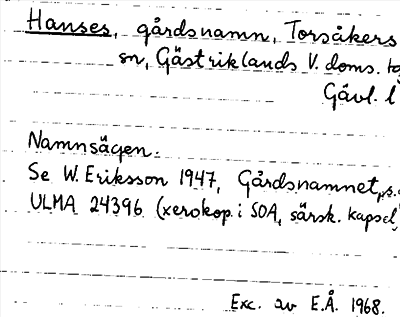 Hanses, gårdsnamn, Torsåkers
sn, Gästriklands V. doms.
Gävl. l
Namnsägen.
Se W. Eriksson 1947, Gårdsnamnet, s.
ULMA 24396 (xerokop. i SOA, särsk. kapsel,
Exc. av E.Å. 1968.